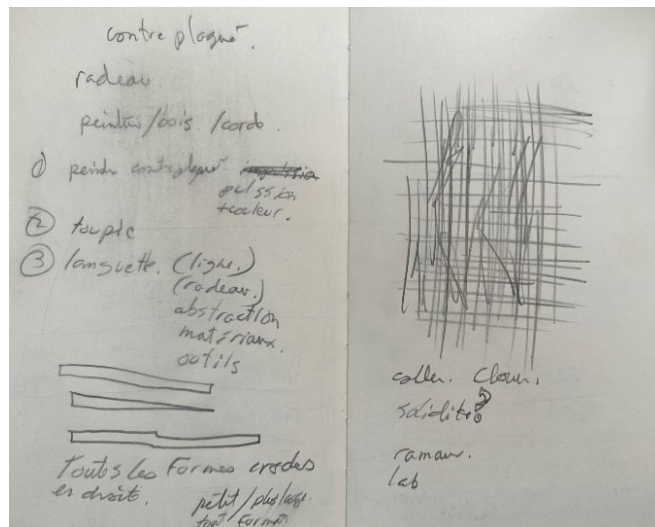 contre plaqué.
radeau
peinture/bois./corde.
1) peindre contreplaqué.
pulssion
+couleur.
2 toupie
3 languette. (ligne.)
(radeau.)
abstraction
matériaux.
outils
Toutes les Formes
en droite. petit/plus large.
tout format
coller. Clouer.
solidité?
rameau.
lab